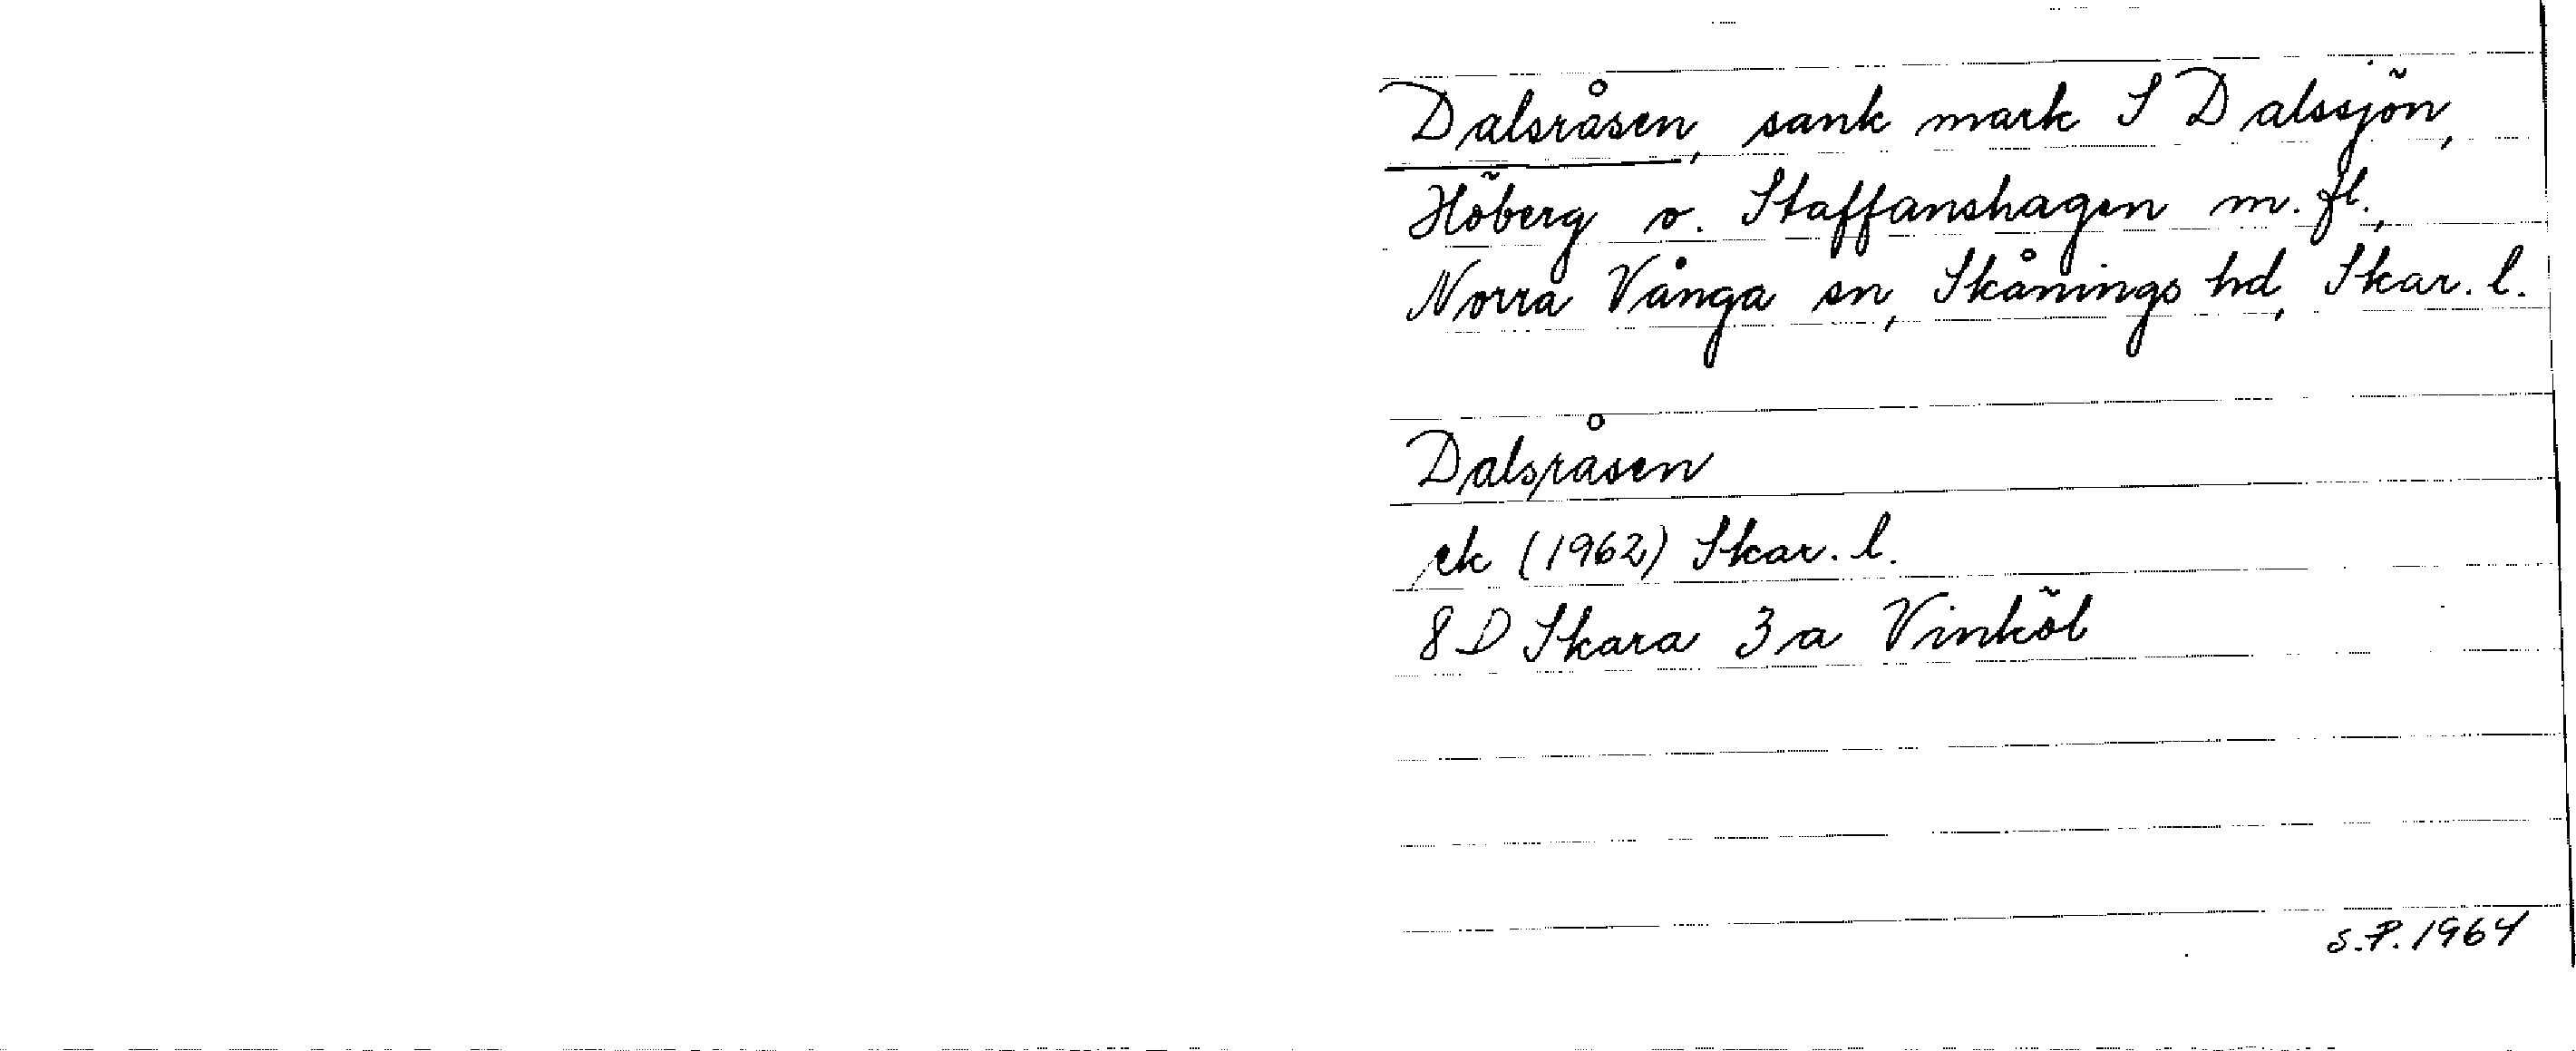 Dalsråsen, sank mark S Dalssjön,
Höberg o. Staffanshagen m. fl.,
Norra Vånga sn, Skånings hd, Skar. l.
Dalsråsen
ek (1962) Skar. l.
8D Skara 3a Vinköl
S.P. 1964